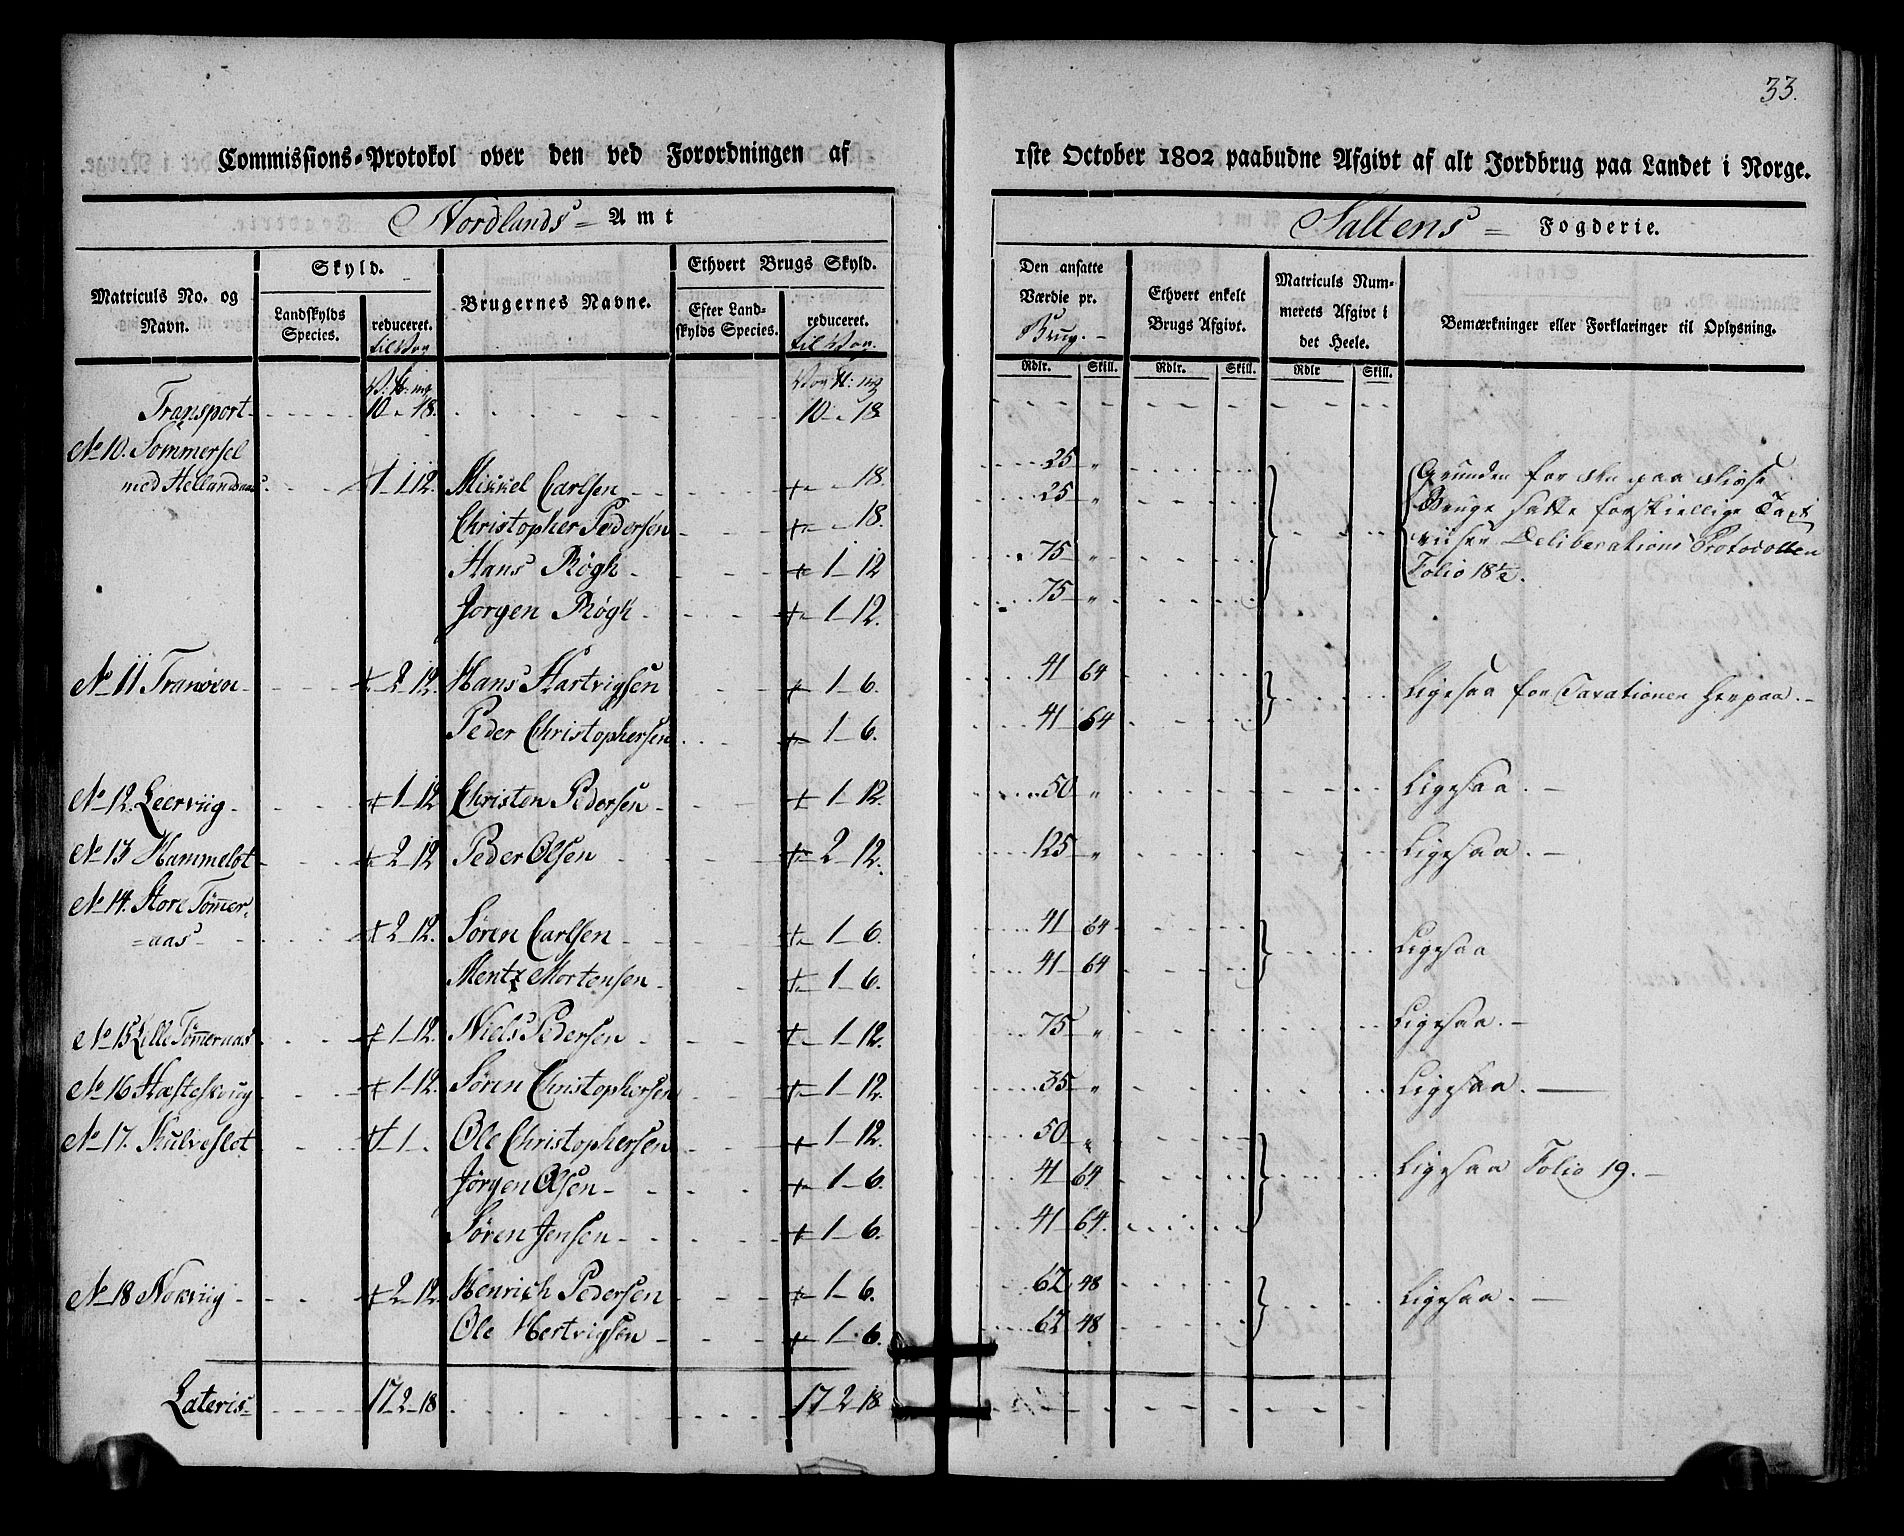 33.
Commissions-Protokol over den ved Forordningen af 1ste October 1802 paabudne Afgivt af alt Jordbrug paa Landet i Norge.
Nordlands = Amt
Saltens = Fogderie.
Matriculs No. og Navn.
Skyld.
Landskylds Species.
reduceret. til Vog
Brugernes Navne.
Ethvert Brugs Skyld.
Efter Landskylds Species.
reduceret. til Vog.
Den ansatte Værdie pr. Brug.
Ethvert enkelt Brugs Afgivt.
Matriculs Nummerets Afgivt i det Heele.
Bemærkninger eller Forklaringer til Oplysning.
Rdlr. Skill. Rdlr. Skill. Rdlr Skill.
Transport 10 " 18. 10 " 18
No 10. Sommersel
med Hellandsnæs 1-1-12. Mikkel Carlsen - 18. 25 " Grunden for den paa disse
Christopher Pedersen - 18. 25 " Bruge satte forskiellige Taxt
Hans Røgh 1-12 75 " viiser Deliberations Protocollen
Jørgen Røgh 1-12. 75 " Folio 18½.
No 11 Tranøen 2-12. Hans Hartvigsen 1-6. 41 64 Ligesaa for Taxationen herpaa.
Peder Christophersen 1-6. 41 64
No 12. Leerviig 1-12 Christen Pedersen 1-12. 50 " Ligesaa.
No 13 Hammelot 2-12 Peder Olsen 2-12. 125 " Ligesaa.
No 14. Store Tømer=
=aas 2-12. Søren Carlsen 1-6. 41 64 Ligesaa
Mentz Mortensen 1-6. 41 64
No 15 Lille Tømeraas 1-12. Niels Pedersen 1-12. 75 " Ligesaa.
No 16 Hæsteskong 1-12. Søren Christophersen 1-12. 35 " Ligesaa.
No 17. Kulveslot 1-1-. Ole Christophersen 1-12. 50 "
Jørgen Olsen 1-6. 41 64 Ligesaa Folio 19.
Søren Jensen 1-6. 41 64.
No 18 Nokviig 2-12. Henrich Pedersen 1-6. 62 48 Ligesaa.
Ole Hertvigsen 1-6. 62 48
Lateris 17-2-18 17-2-18